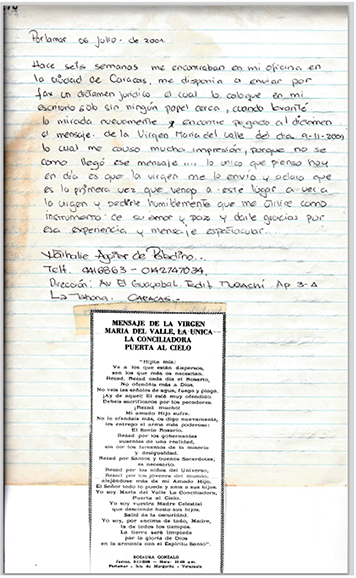 Porlamar 06 Julio - de 2001
Hace seis semanas me encontraban en mi oficina en
la ciudad de Caracas, me disponía a enviar por
fax un dictamen jurídico el cual lo coloque en mi
escritorio sób sin ningún papel cerca, cuando levanté
la mirada nuevamente y encontré pegado al dictamen
el mensaje de la Virgen María del Valle del día 9-11-2000
lo cual me causo mucho impresión, porque no se
como llegó ese mensaje .... lo unico que pienso hoy
en día es que la virgen me lo envio y aclaro que
es la primera vez que vengo a este lugar a ver a
la virgen y pedirle humildemente que me utilice como
instrumento de su amor y paz y darle gracias por
esa experiencia y mensaje espectacular.
Nathalie Aguilar de Paladino..
Telf.
Dirección: Av El Guayabal. Edif. Ap 3-A
La Tahona. CARACAS.-
MENSAJE DE LA VIRGEN
MARIA DEL VALLE, LA UNICA
LA CONCILIADORA
PUERTA AL CIELO
"Hijita mía:
Ve a los que están dispersos,
son los que más os necesitan.
Rezad, Rezad cada día el Rosario,
No ofendáis más a Dios.
No veis las señales de agua, fuego y plaga.
¡Ay de aquel! El está muy ofendido.
Debéis sacrificaros por los pecadores.
¡Rezad mucho!
Mi amado Hijo sufre.
No lo ofendáis más, os digo nuevamente,
les entrego el arma más poderosa:
El Santo Rosario.
Rezad por los gobernantes
ausentes de una realidad,
sin oír los lamentos de la miseria
y desigualdad.
Rezad por Santos y buenos Sacerdotes;
es necesario.
Rezad por los niños del Universo,
Rezad por los jóvenes del mundo,
alejándose más de mi Amado Hijo,
El Señor todo lo puede y ama a sus hijos.
Yo soy María del Valle La Conciliadora,
Puerta al Cielo.
Yo soy vuestra Madre Celestial
que desciende hasta sus hijos.
Salid de la oscuridad.
Yo soy, por encima de todo, Madre,
la de todos los tiempos.
La tierra será limpiada
por la gloria de Dios
en la armonía con el Espíritu Santo".
ROSAURA GONZALO
Porlamar - Isla de Margarita - Venezuela